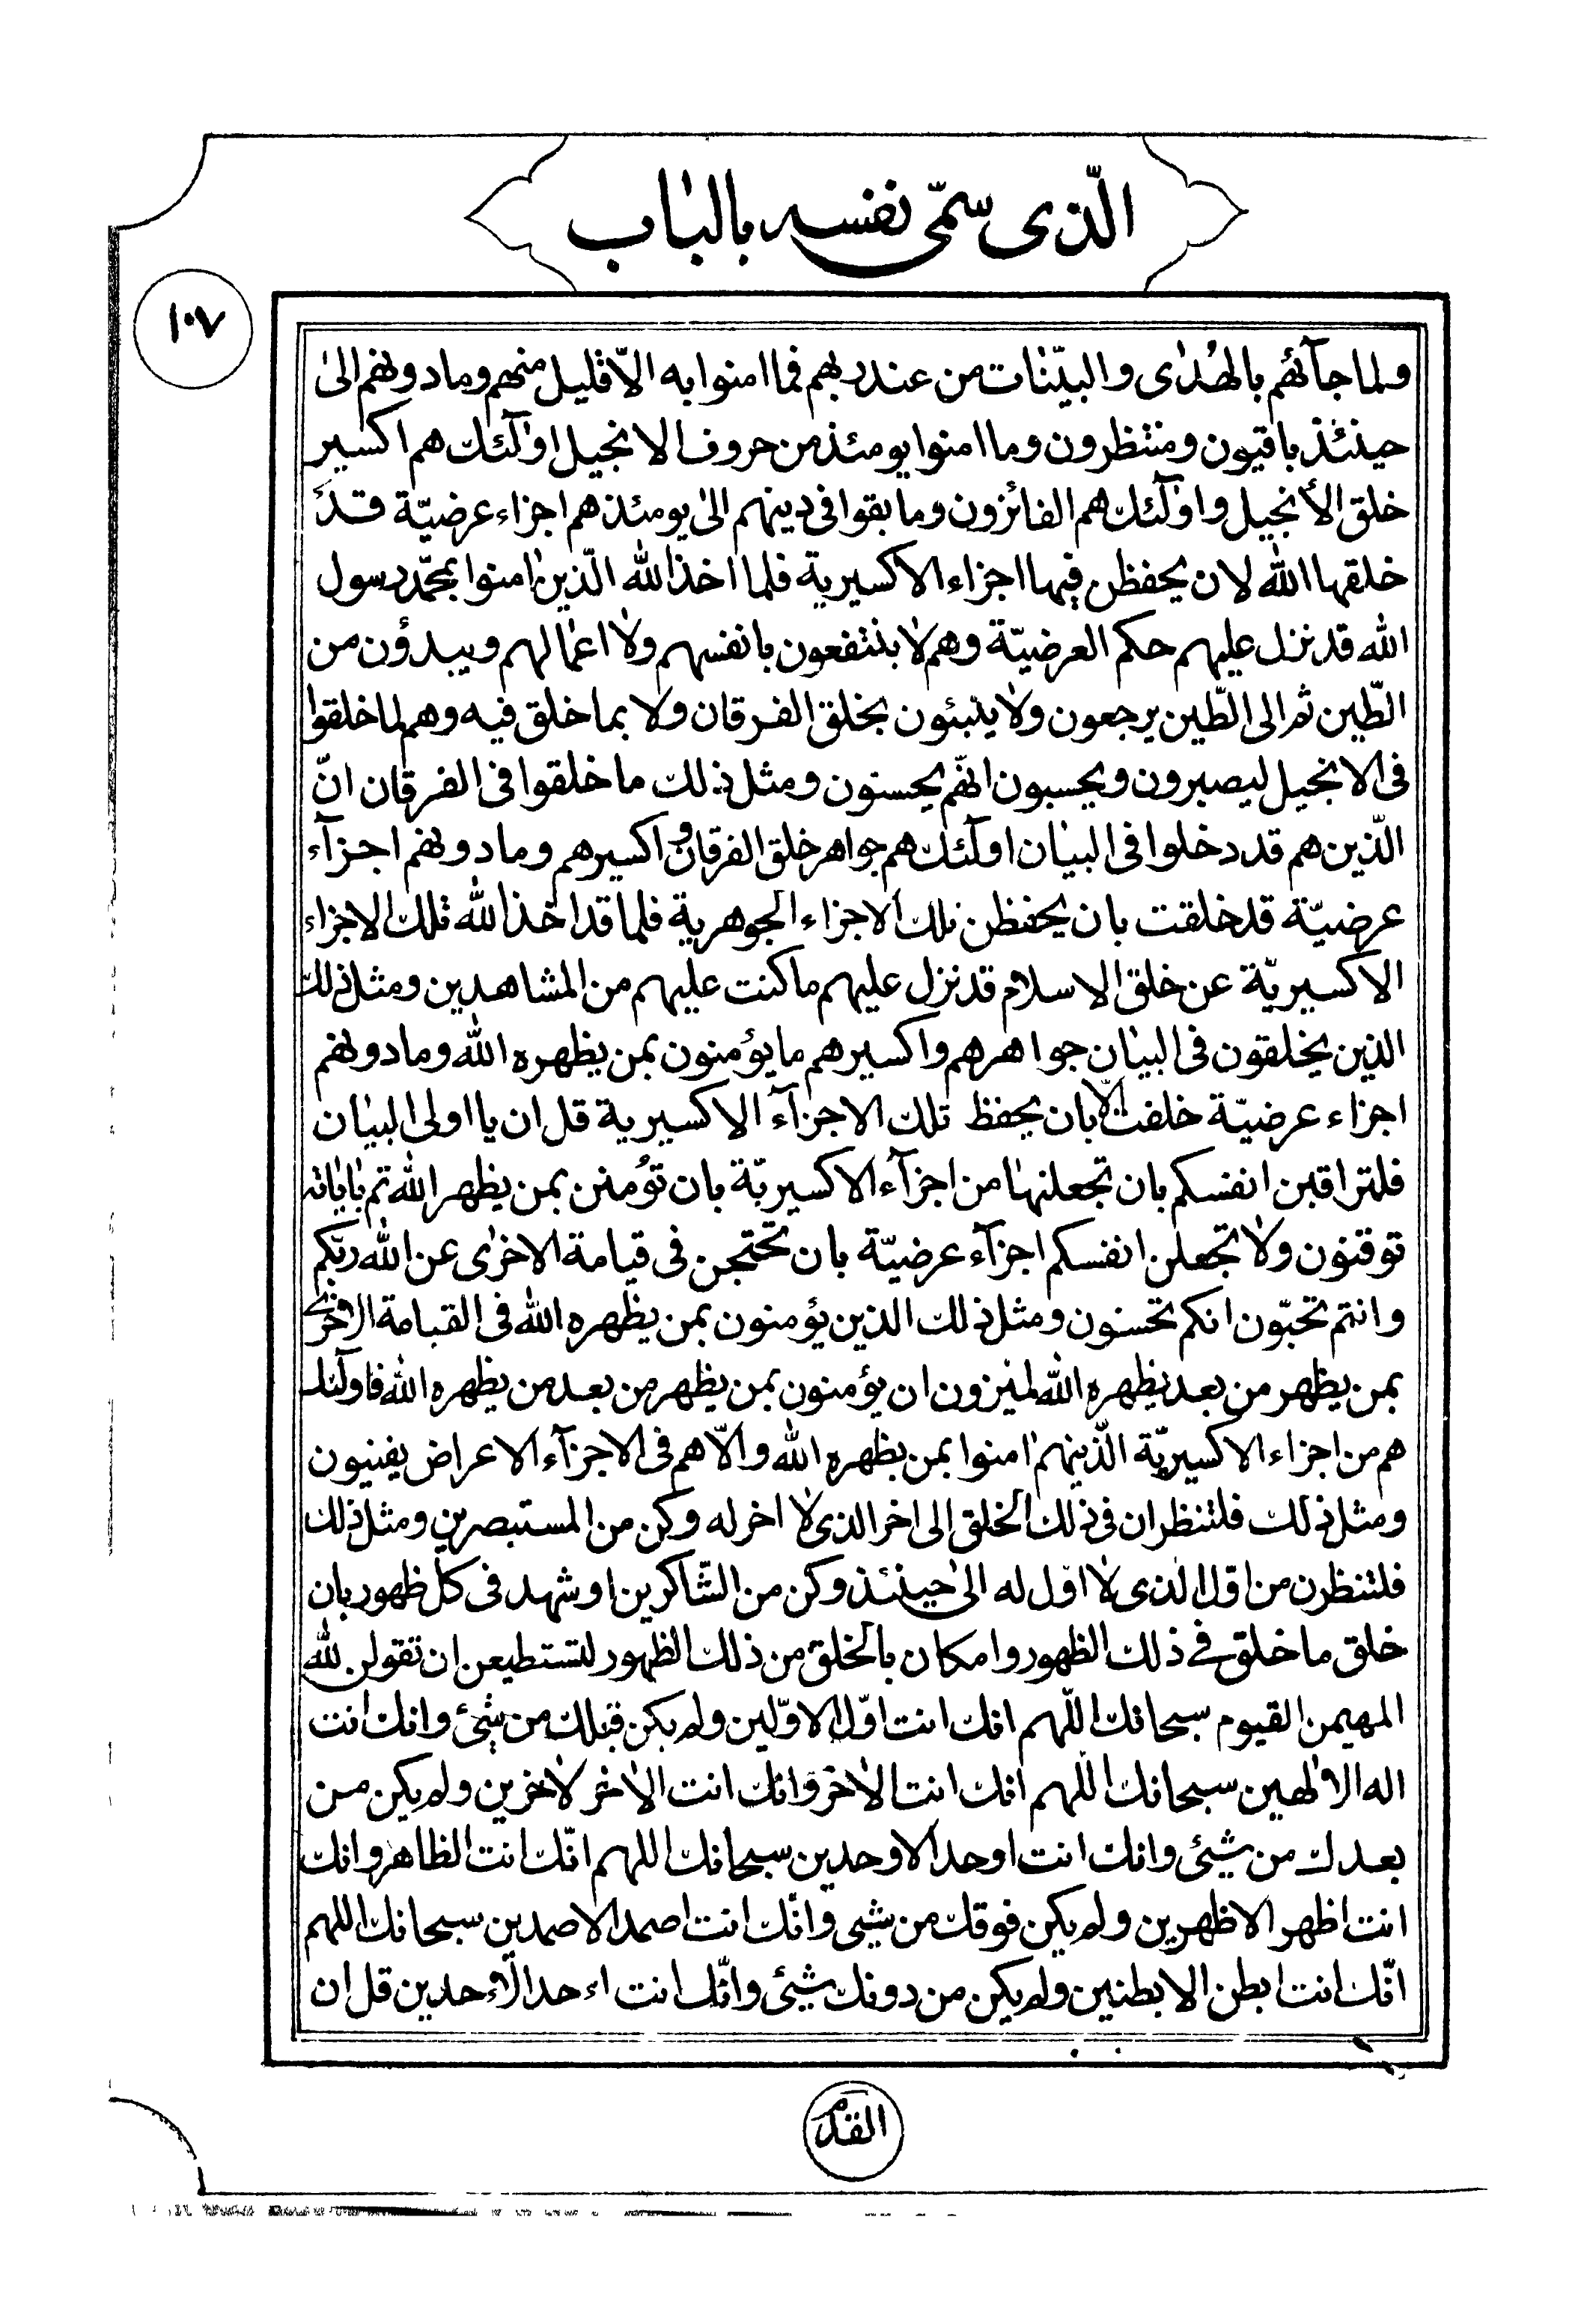 الّذی سمّی نفسه بالباب
۱۰۷
ولما جآئهم بالهدٰی والبیّنات من عند ربهم فما امنوا به الّا قلیل منهم وما دونهم الیٰ
حینئذ باقیون ومنتظرون وما امنوا یومئذ من حروف الانجیل اولٰٓئك هم اکسیر
خلق الأنجیل واولٰٓئك هم الفائزون وما بقوا فی دینهم الیٰ یومئذ هم اجزاء عرضیّة قد
خلقها الله لان یحفظن فیها اجزاء الاکسیریة فلما اخذ الله الّذین اٰمنوا بمحمّد رسول
الله قد نزل علیهم حکم العرضیّة وهم لا ینتفعون بانفسهم ولا اعمالهم ویبدؤن من
الطّین ثم الی الطّین یرجعون ولا ینبئون بخلق الفرقان ولا بما خلق فیه وهم لما خلقوا
فی الانجیل لیصبرون ویحسبون انهّم یحسنون ومثل ذلك ما خلقوا فی الفرقان انّ
الّذین هم قد دخلوا فی البیان اولٰٓئك هم جواهر خلق الفرقان و اکسیرهم وما دونهم اجزآء
عرضیّة قد خلقت بان یحفظن تلك الاجزاء الجوهریة فلما قد اخذ الله تلك الاجزاء
الاکسیریّة عن خلق الاسلام قد نزل علیهم ما کنت علیهم من المشاهدین ومثل ذلك
الذین یخلقون فی البیان جواهرهم واکسیرهم ما یؤمنون بمن یظهره الله وما دونهم
اجزاء عرضیّة خلقت الّا بان یحفظ تلك الاجزآء الاکسیریة قل ان یا اولی البیان
فلتراقبن انفسکم بان تجعلنها من اجزآء الاکسیریّة بان تؤمنن بمن یظهر الله ثم باٰیاته
توقنون ولا تجعلن انفسکم اجزآء عرضیّة بان تحتجبن فی قیامة الاخرٰی عن الله ربّکم
وانتم تحبّون انکم تحسنون ومثل ذلك الذین یؤمنون بمن یظهره الله فی القیامة الاخری
بمن یظهر من بعد یظهره الله لمیزون ان یؤمنون بمن یظهر من بعد من یظهره الله فاولٰٓئك
هم من اجزاء الاکسیریّة الّذینهم اٰمنوا بمن یظهره الله والّا هم فی الاجزآء الاعراض یفنیون
ومثل ذلك فلتنظران فی ذلك الخلق الی اخر الذی لا اخر له وکن من المستبصرین ومثل ذلك
فلتنظرن من اوّل الذی لا اوّل له الیٰ حینئذ وکن من الشّاکرین اوشهد فی کل ظهور بان
خلق ما خلق فی ذلك الظهور وامکان بالخلق من ذلك الظهور لتستطیعن ان تقولن لله
المهیمن القیوم سبحانك اللّهم انك انت اوّل الاوّلین ولم یکن قبلك من شیئ وانك انت
اله الالٰهین سبحانك اللّهم انك انت الاٰخر وانك انت الاٰخر لاٰخرین ولم یکن من
بعدك من شیئ وانك انت اوحد الاوحدین سبحانك اللهم انّك انت الظاهر وانك
انت اظهر الاظهرین ولم یکن فوقك من شیی وانّك انت اصمد الاصمدین سبحانك اللهم
انّك انت ابطن الابطنین ولم یکن من دونك شیئ وانّك انت اءحد الاءحدین قل ان
القدم